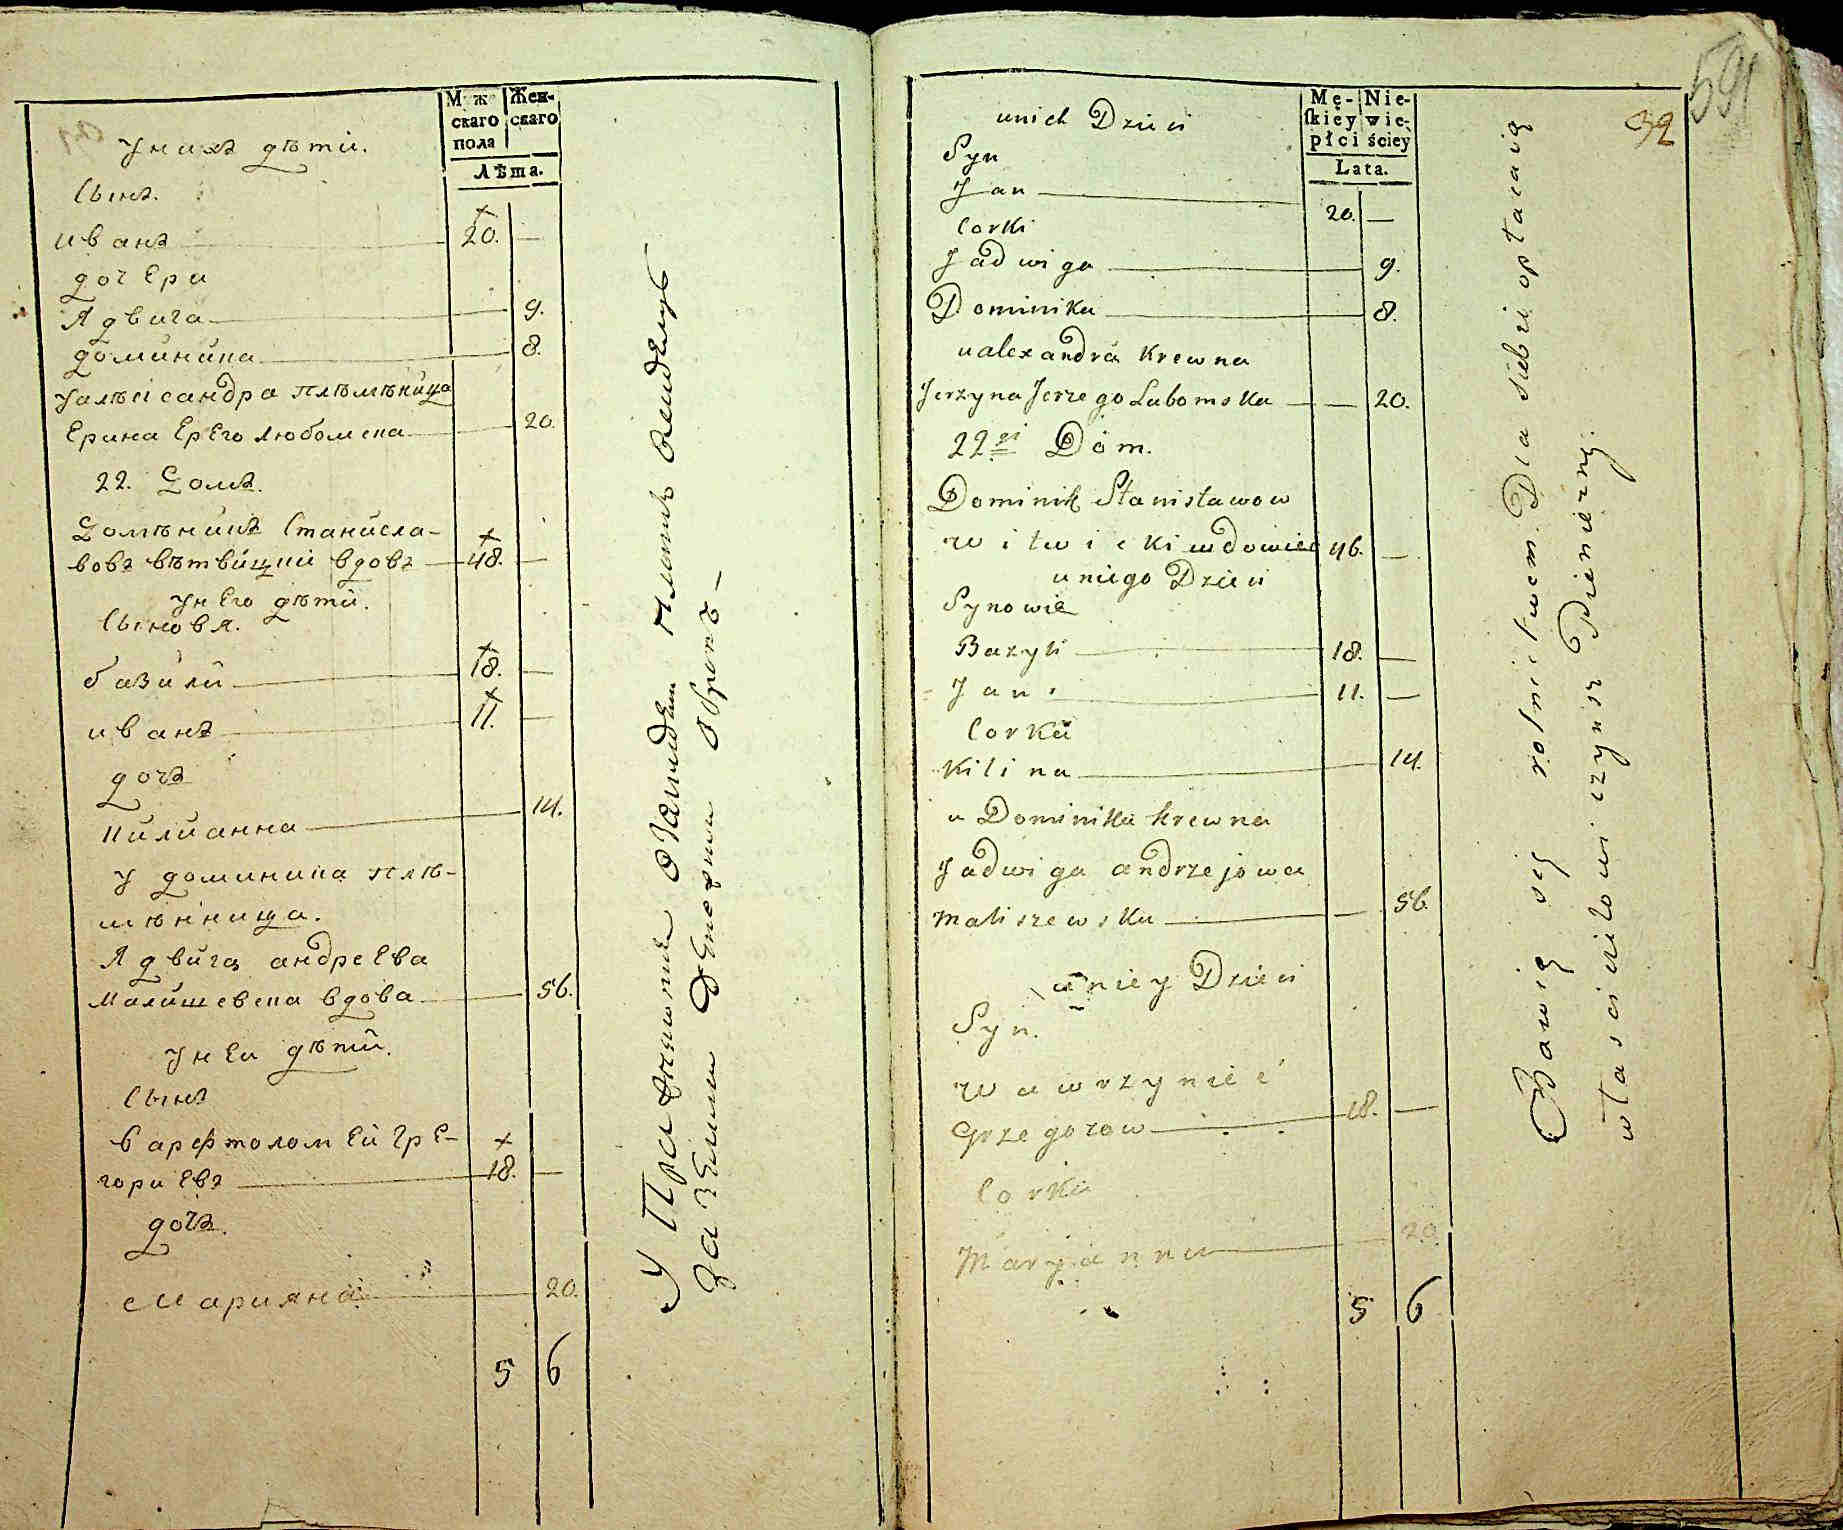 Мꙋж- Жен-
скаго скаго
пола
Лѣта.
У нихъ дѣти.
Сынъ.
Иванъ 20. —
дочери
Ядвига 9.
доминика 8.
У алѣксандра плѣмѣница
Ерина Ерего Любомска 20.
22. Домъ.
Домѣникъ Станисла-
вовъ вѣтвицкій вдовъ 48. —
У него дѣти.
Сыновя.
базили 18. —
иванъ 11. —
дочъ
Килианна 14.
У доминика плѣ-
мѣнница.
Ядвига андреева
Малишевска вдова 56.
У неи дѣти.
Сынъ
барфтоломей Гре-
гориевъ 18. —
дочъ.
Марияна 20.
5 6
59
32
Mę- Nie-
ſkiey wie-
płci ściey
Lata.
u nich Dzieci
Syn
Jan 20. —
Corki
Jadwiga 9.
Dominika 8.
u alexandra Krewna
Jerzyna Jerzego Lubomska — 20.
22gi Dom.
Dominik Stanisławow
Witwicki wdowiec 46. —
u niego Dzieci
Synowie
Bazyli 18. —
Jan 11. —
Corka
Kilina 14.
u Dominika krewna
Jadwiga andrzejowa
Maliszewska — 56.
u niey Dzieci
Syn.
Wawrzyniec
Grzegorow 18. —
Corka
Maryanna 20.
5 6
Bawią się rolnictwem Dla siebie opłacaią
właścicielowi czynsz Pienieżny.